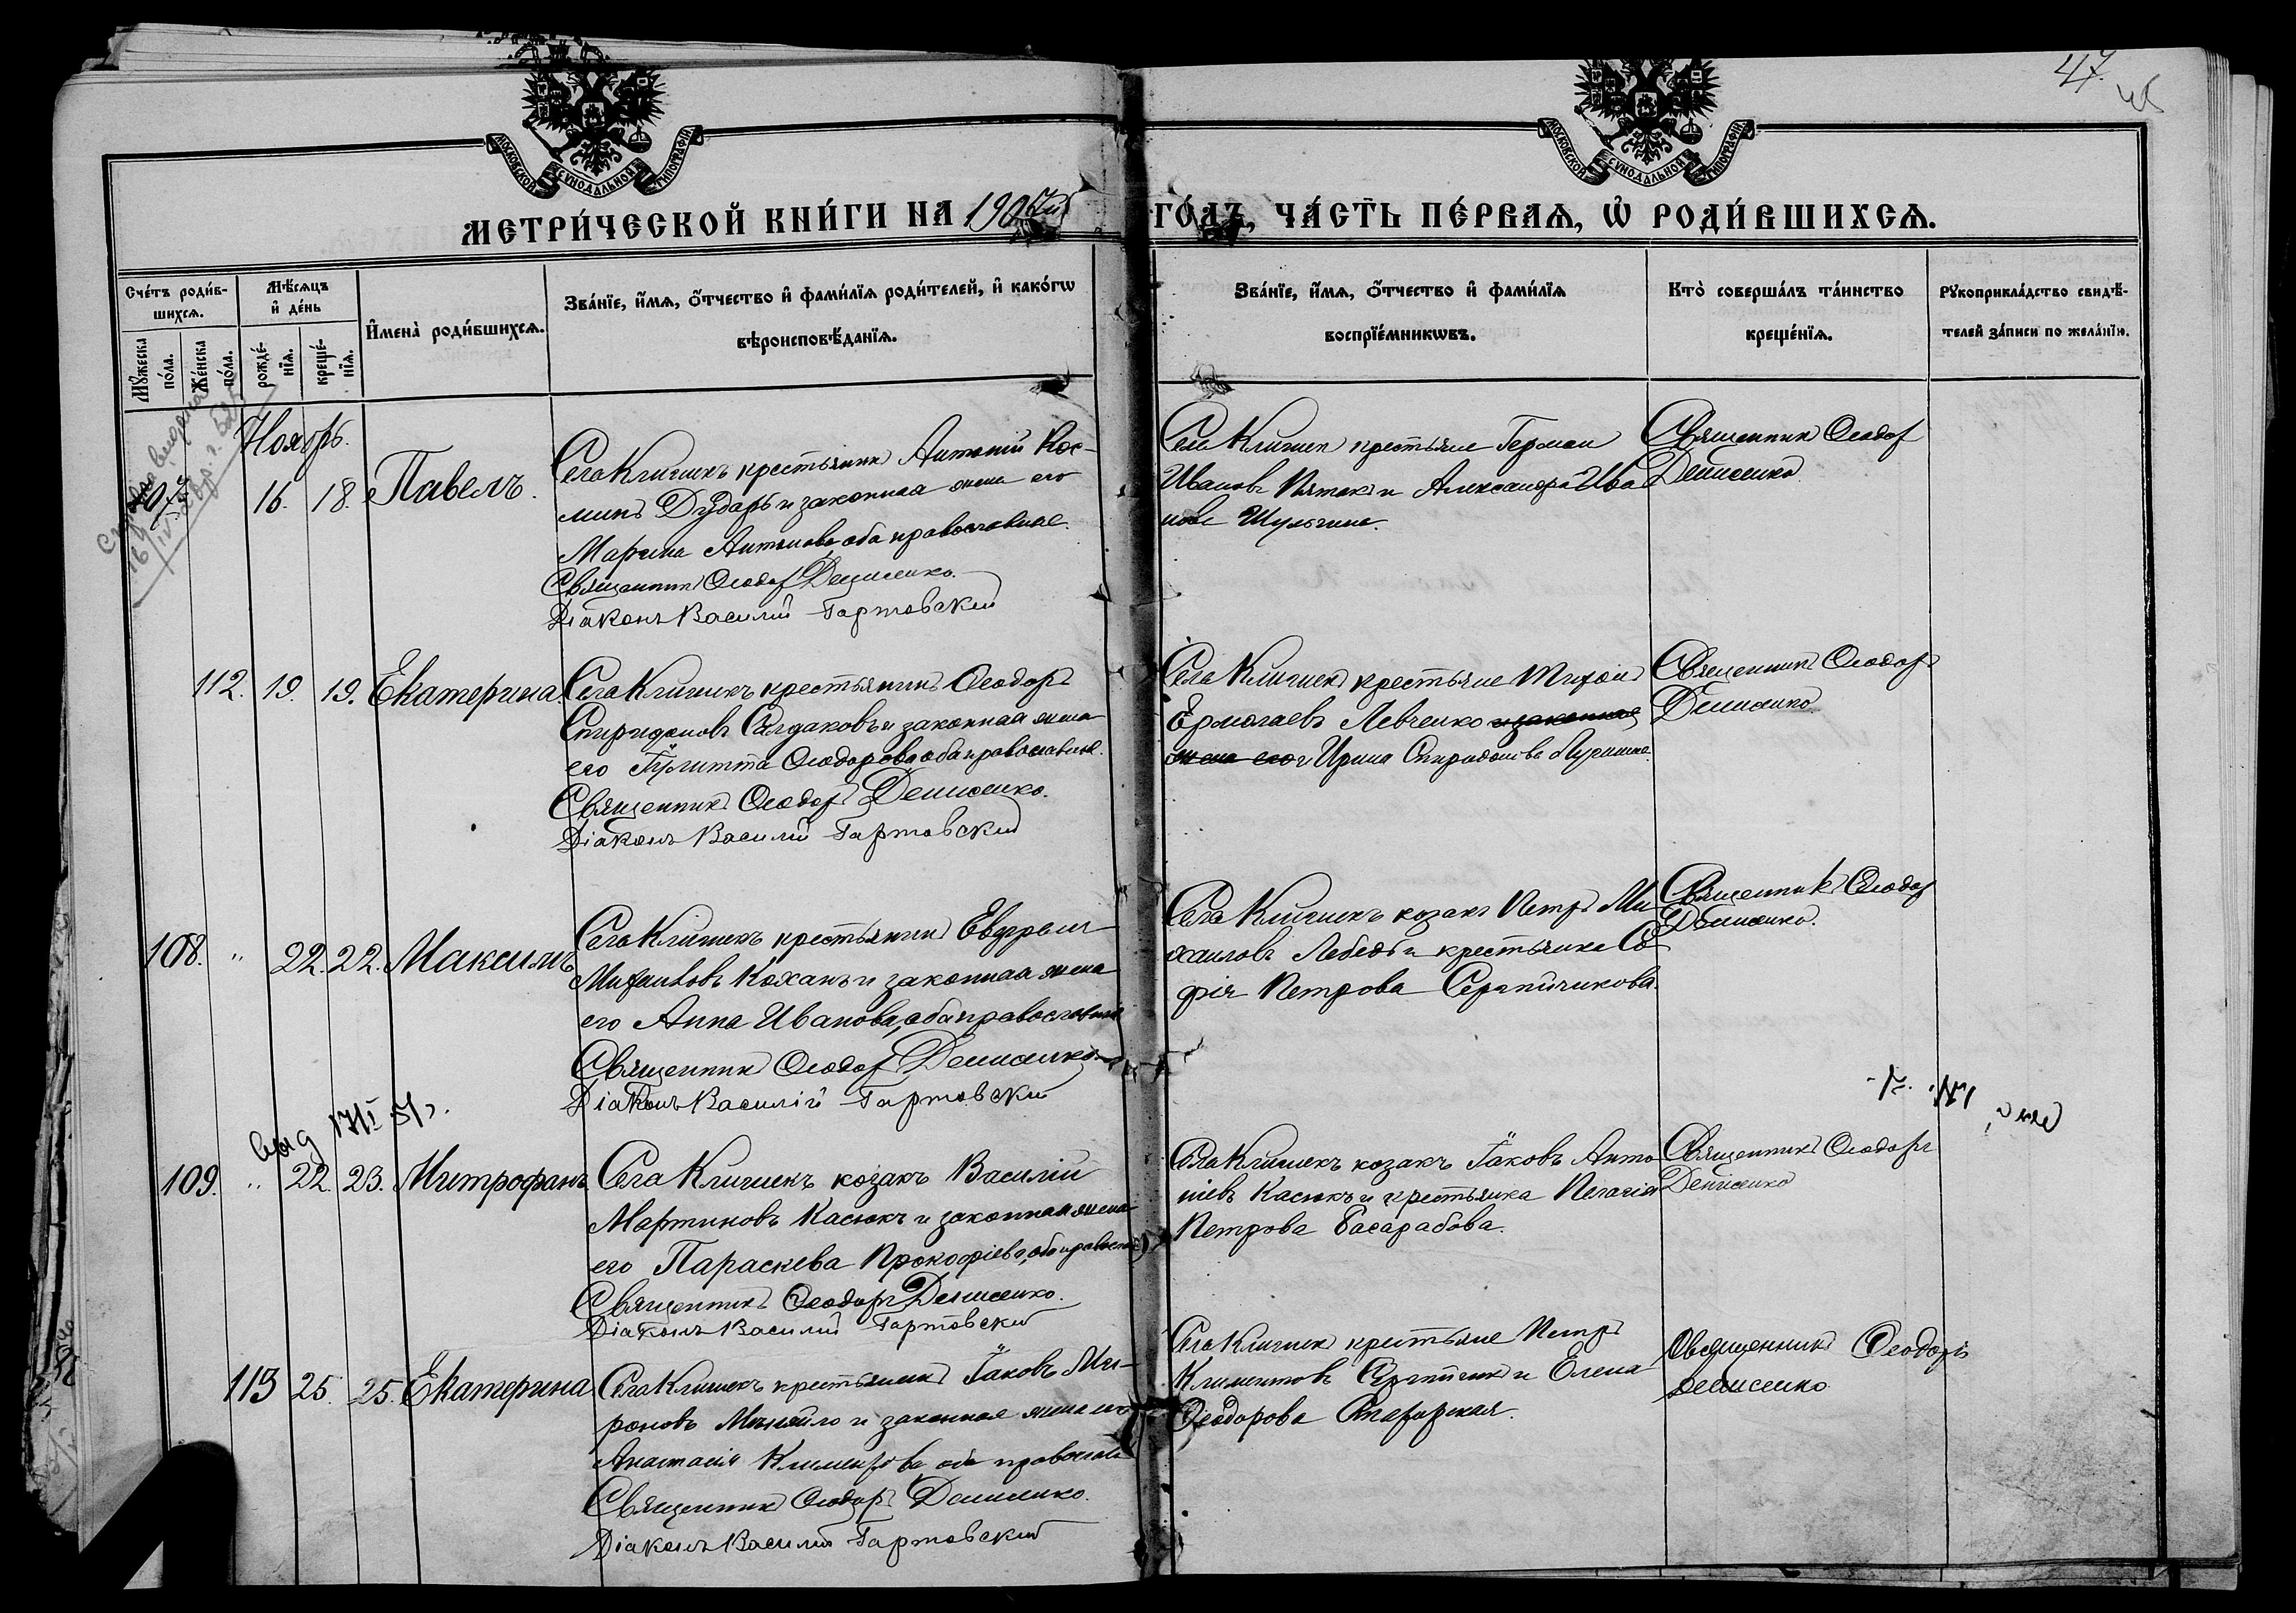 47.
МОСКОВСКОЙ СѴНОДАЛЬНОЙ ТИПОГРАФІИ
МОСКОВСКОЙ СѴНОДАЛЬНОЙ ТИПОГРАФІИ
МЕТРИ́ЧЕСКОЙ КНИ́ГИ НА 1907й ГО́ДЪ, ЧА́СТЬ ПЕ́РВАЯ, Ѡ РОДИ́ВШИХСЯ.
Сче́тъ роди́в-
шихся.
Му́жеска по́ла.
Же́нска по́ла.
Мѣ́сяцъ
и де́нь
рожде́-
нїя.
креще́-
нїя.
Имена̀ роди́вшихся.
Зва́нїе, и́мя, о́тчество и фами́лїя роди́телей, и како́гѡ
вѣроисповѣ́данїя.
Зва́нїе, и́мя, о́тчество и фами́лїя
воспрїе́мникѡвъ.
Кто̀ соверша́лъ та́инство
креще́нїя.
Рукоприкла́дство свидѣ́-
телей за́писи по жела́нїю.
Ноябрь.
16. 18. Павелъ.
Села Клишекъ крестьянинъ Антоній Кос-
минъ Дударь и законная жена его
Марина Антонова, оба православные.
Священникъ Ѳеодоръ Денисенко.
Діаконъ Василій Гартовский
Села Клишекъ крестьяне Герман
Ивановъ Пятак и Александра Ива
нова Шульгина.
Священникъ Ѳеодор
Денисенко
112. 19. 19. Екатерина.
Села Клишекъ крестьянинъ Ѳеодоръ
Спиридоновъ Салдаковъ и законная жена
его Іулитта Ѳеодорова, оба православные.
Священникъ Ѳеодоръ Денисенко.
Діаконъ Василий Гартовский
Села Клишекъ крестьяне Тихон
Ермолаевъ Левченко и законная
жена его и Ирина Спиридонова
Священникъ Ѳеодоръ
Денисенко
108. " 22. 22. Максимъ
Села Клишекъ крестьянинъ Евфрем
Михаиловъ Коханъ и законная жена
его Анна Иванова, оба православные
Священникъ Ѳеодоръ Денисенко
Діаконъ Василій Гартовский
Села Клишекъ козакъ Петръ Ми
хаиловъ Лебедь и крестьянка Со
фія Петрова Серпичикова.
Священникъ Ѳеодор
Денисенко.
выд
109. " 22. 23. Митрофанъ
Села Клишекъ козакъ Василій
Мартиновъ Касюкъ и законная жена
его Параскева Прокофіева, оба правосла
Священникъ Ѳеодоръ Денисенко.
Діаконъ Василий Гартовский
Села Клишекъ козакъ Іаковъ Анто
ніевъ Касюкъ и крестьянка Пелагія
Петрова Басарабова.
Священникъ Ѳеодоръ
Денисенко
113 25. 25. Екатерина
Села Клишекъ крестьянинъ Іаковъ Ми-
роновъ Миняйло и законная жена его
Анастасія Климентова оба православ
Священникъ Ѳеодоръ Денисенко.
Діаконъ Василий Гартовский
Села Клишекъ крестьяне Петръ
Климентовъ и Елена
Ѳеодорова
Священникъ Ѳеодоръ
Денисенко